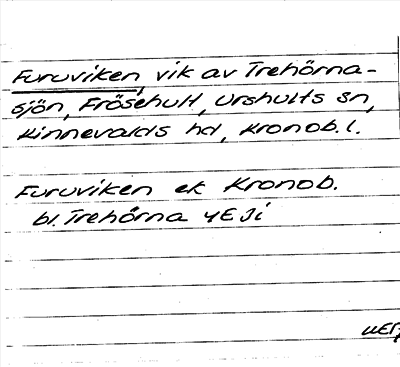 Furuviken, vik av Trehörna-
sjön, Frösehult, Urshults sn,
Kinnevalds hd, Kronob. l.
Furuviken ek Kronob.
bl. Trehörna 4E Ji